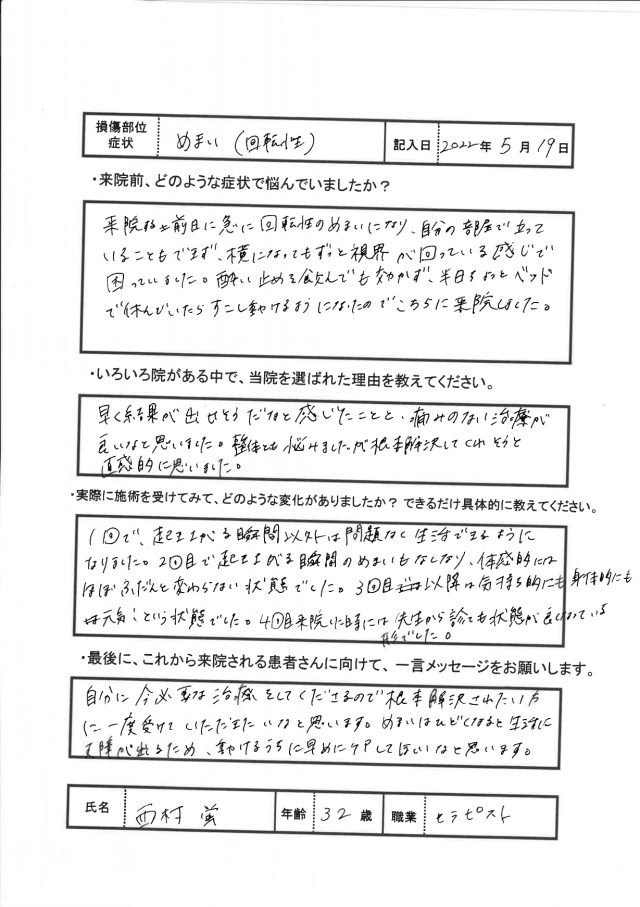 損傷部位
症状
めまい（回転性）
記入日 2022年 5月 19日
・来院前、どのような症状で悩んでいましたか？
来院する前日に急に回転性のめまいになり、自分の部屋で立って
いることもできず、横になってもずっと視界が回っている感じで
困っていました。酔い止めを飲んでも効かず、半日ちょっとベッド
で休んでいたらすこし動けるようになったのでこちらに来院しました。
・いろいろ院がある中で、当院を選ばれた理由を教えてください。
早く結果が出せそうだなと感じたことと、痛みのない治療が
良いなと思いました。整体とも悩みましたが根本解決してくれそうと
直感的に思いました。
・実際に施術を受けてみて、どのような変化がありましたか？ できるだけ具体的に教えてください。
1回で、起き上がる瞬間以外は問題なく生活できるように
なりました。2回目で起き上がる瞬間のめまいもなくなり、体感的には
ほぼふだんと変わらない状態でした。3回目以降は気持ち的にも身体的にも
元気！という状態でした。4回目来院した時には先生から診ても状態が良くなっている
形でした。
・最後に、これから来院される患者さんに向けて、一言メッセージをお願いします。
自分に今必要な治療をしてくださるので根本解決されたい方
に一度受けていただきたいなと思います。めまいはひどくなると生活に
支障が出るため、動けるうちに早めにケアしてほしいなと思います。
氏名 西村 蛍 年齢 32歳 職業 セラピスト